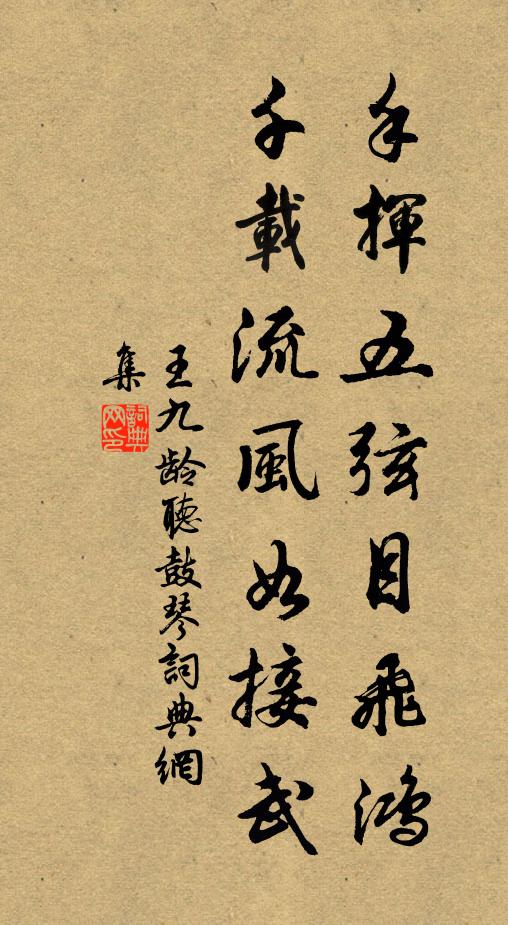 手揮五弦目飛鴻
千載流風如接武
王九龄聽鼓琴詞典網
集
詞典
网印